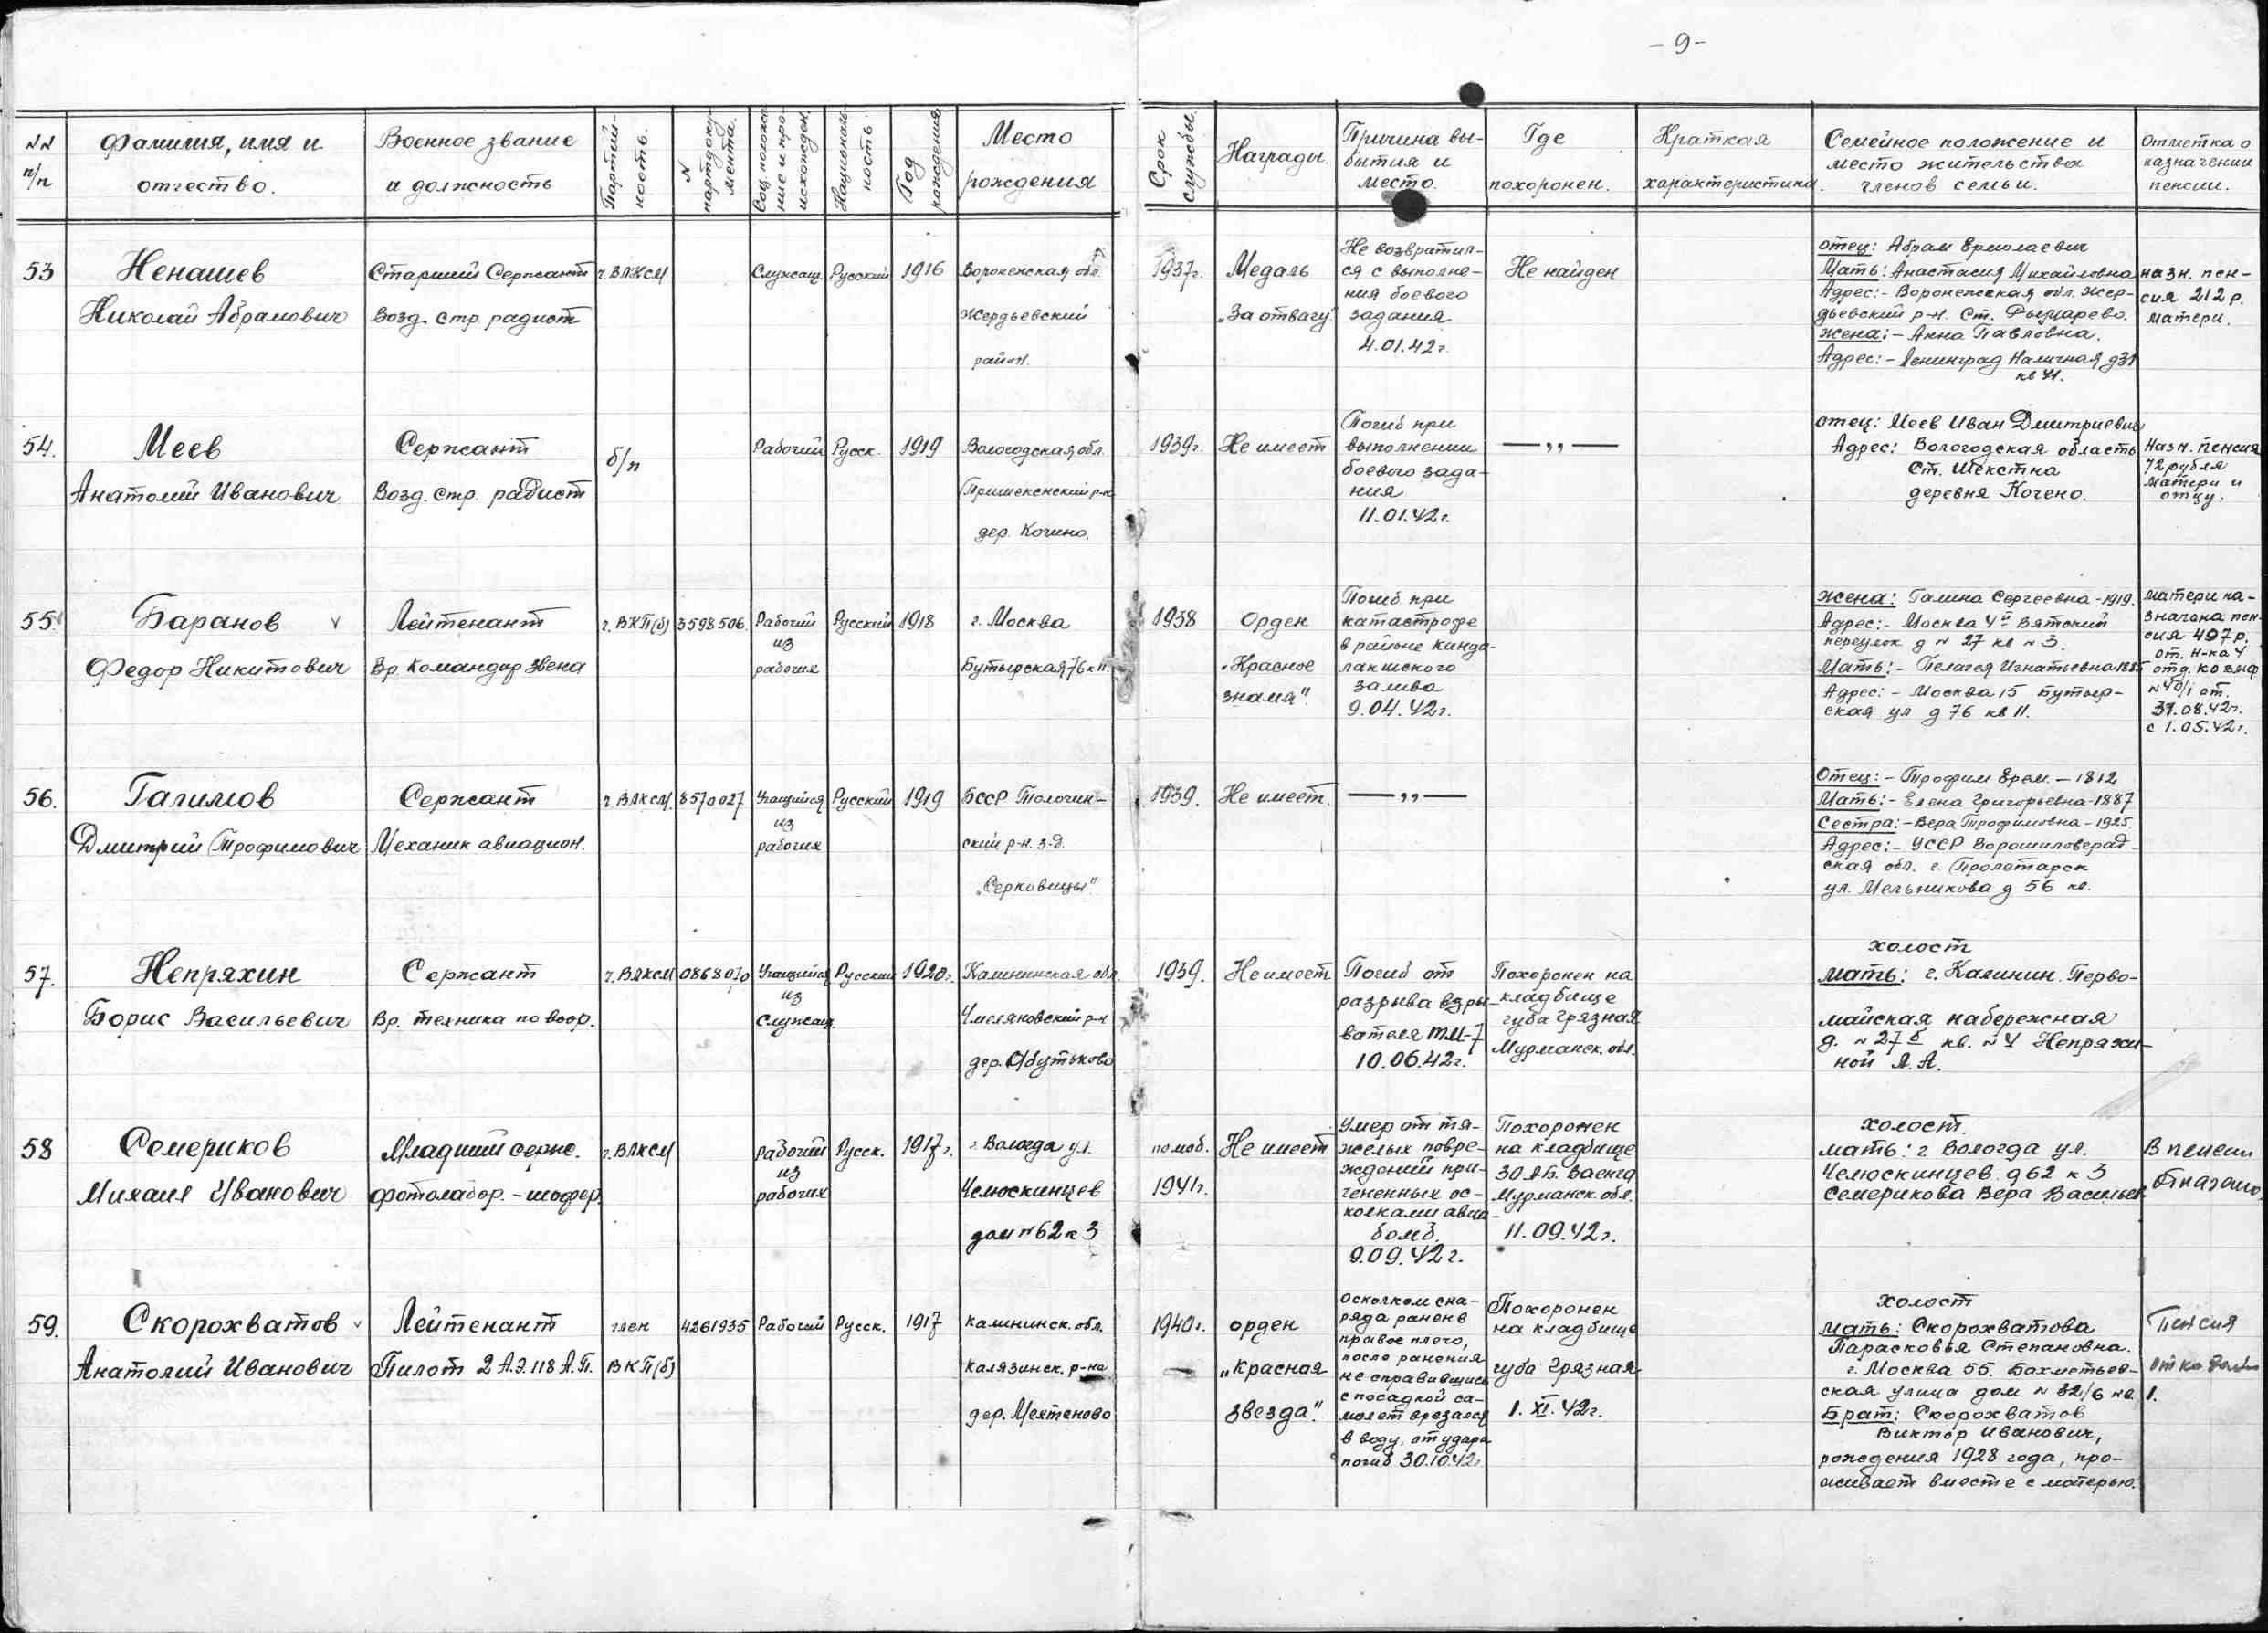 - 9 -
№№ п/п
Фамилия, имя и отчество.
Военное звание и должность
Партий-
ность.
N партдоку-
мента.
Соц. положе-
ние и про-
исхожден.
Националь-
ность
Год рождения
Место рождения
Срок службы.
Награды.
Причина вы-
бытия и
место.
Где
похоронен.
Краткая
характеристика.
Семейное положение и
место жительства
членов семьи.
Отметка о
назначении
пенсии.
53
Ненашев
Николай Абрамович
Старший Сержант
Возд. стр. радист
ч. ВЛКСМ
Служащ.
Русский
1916
Воронежская обл.
Жердьевский
район.
1937г.
Медаль
"За отвагу"
Не возвратил-
ся с выполне-
ния боевого
задания
4.01.42г.
Не найден
отец: Абрам Ермолаевич
Мать: Анастасия Михайловна
Адрес:- Воронежская обл. Жер-
дьевский р-н. Ст. Рымарево.
жена:- Анна Павловна.
Адрес:- Ленинград Наличная д31
кв 41.
назн. пен-
сия 212 р.
матери.
54.
Меев
Анатолий Иванович
Сержант
Возд. стр. радист
б/п
Рабочий
Русск.
1919
Вологодская обл.
Пришекснский р-н
дер. Кочино.
1939г.
Не имеет
Погиб при
выполнении
боевого зада-
ния
11.01.42г.
— „ —
отец: Меев Иван Дмитриевич
Адрес: Вологодская область
ст. Шекстна
деревня Кочено.
Назн. пенсия
72 рубля
матери и
отцу.
55.
Баранов
Федор Никитович
Лейтенант
Вр. Командир звена
ч. ВКП(б)
3598506.
Рабочий
из
рабочих
Русский
1918
г. Москва
Бутырская 76 к 11.
1938
Орден
"Красное
знамя".
Погиб при
катастрофе
в районе Канда-
лакшского
залива
9.04.42г.
жена: Галина Сергеевна - 1919.
Адрес:- Москва 4й Вятский
переулок д № 27 кв № 3.
Мать:- Пелагея Игнатьевна 1885
Адрес:- Москва 15 Бутыр-
ская ул д 76 кв 11.
матери на-
значена пен-
сия 407 р.
от. н-ка 4
отд.
№40/1 от.
31.08.42г.
с 1.05.42г.
56.
Галимов
Дмитрий Трофимович
Сержант
Механик авиацион.
ч. ВЛКСМ
8570027
Учащийся
из
рабочих
Русский
1919
БССР Толочин-
ский р-н. з-д.
"Серковицы"
1939.
Не имеет.
— „ —
Отец:- Трофим Ерем. - 1812
Мать:- Елена Григорьевна - 1887
Сестра:- Вера Трофимовна - 1925.
Адрес:- УССР Ворошиловград-
ская обл. г. Пролетарск
ул. Мельникова д 56 кв.
57.
Непряхин
Борис Васильевич
Сержант
Вр. техника по воор.
ч. ВЛКСМ
0868070
Учащийся
из
служащ.
Русский
1920г.
Калининская обл.
дер.
1939.
Не имеет
Погиб от
разрыва взры-
вателя ТМ-7
10.06.42г.
Похоронен на
кладбище
губа Грязная
Мурманск. обл.
холост
мать: г. Калинин. Перво-
майская набережная
д. № 27 б кв. № 4 Непряхи-
ной Я. А.
58
Семериков
Михаил Иванович
Младший серж.
фотолабор. - шофер.
ч. ВЛКСМ
рабочий
из
рабочих
Русск.
1917г.
г. Вологда ул.
Челюскинцев
дом №62 к 3
по моб.
1941г.
Не имеет
Умер от тя-
желых повре-
ждений при-
чененных ос-
колками авиа-
бомб.
9.09.42г.
Похоронен
на кладбище
30 АБ. Ваенга
Мурманск. обл.
11.09.42г.
холост.
мать: г Вологда ул.
Челюскинцев д62 к 3
Семерикова Вера Васильев.
В пенсии
Отказано.
59.
Скорохватов
Анатолий Иванович
Лейтенант
Пилот 2 А.Э. 118 А.П.
член
ВКП(б)
4261935
Рабочий
Русск.
1917
Калининск. обл.
Калязинск. р-на
дер. Мехтеново
1940г.
орден
"Красная
звезда".
осколком сна-
ряда ранен в
правое плечо,
после ранения
не справившись
с посадкой са-
молет врезался
в воду, от удара
погиб 30.10.42г
Похоронен
на кладбище
губа Грязная
1. XI. 42г.
холост
мать: Скорохватова
Парасковья Степановна.
г. Москва 55. Бахметьев-
ская улица дом № 32/6 кв. 1.
Брат: Скорохватов
Виктор Иванович,
рождения 1928 года, про-
живает вместе с матерью.
Пенсия